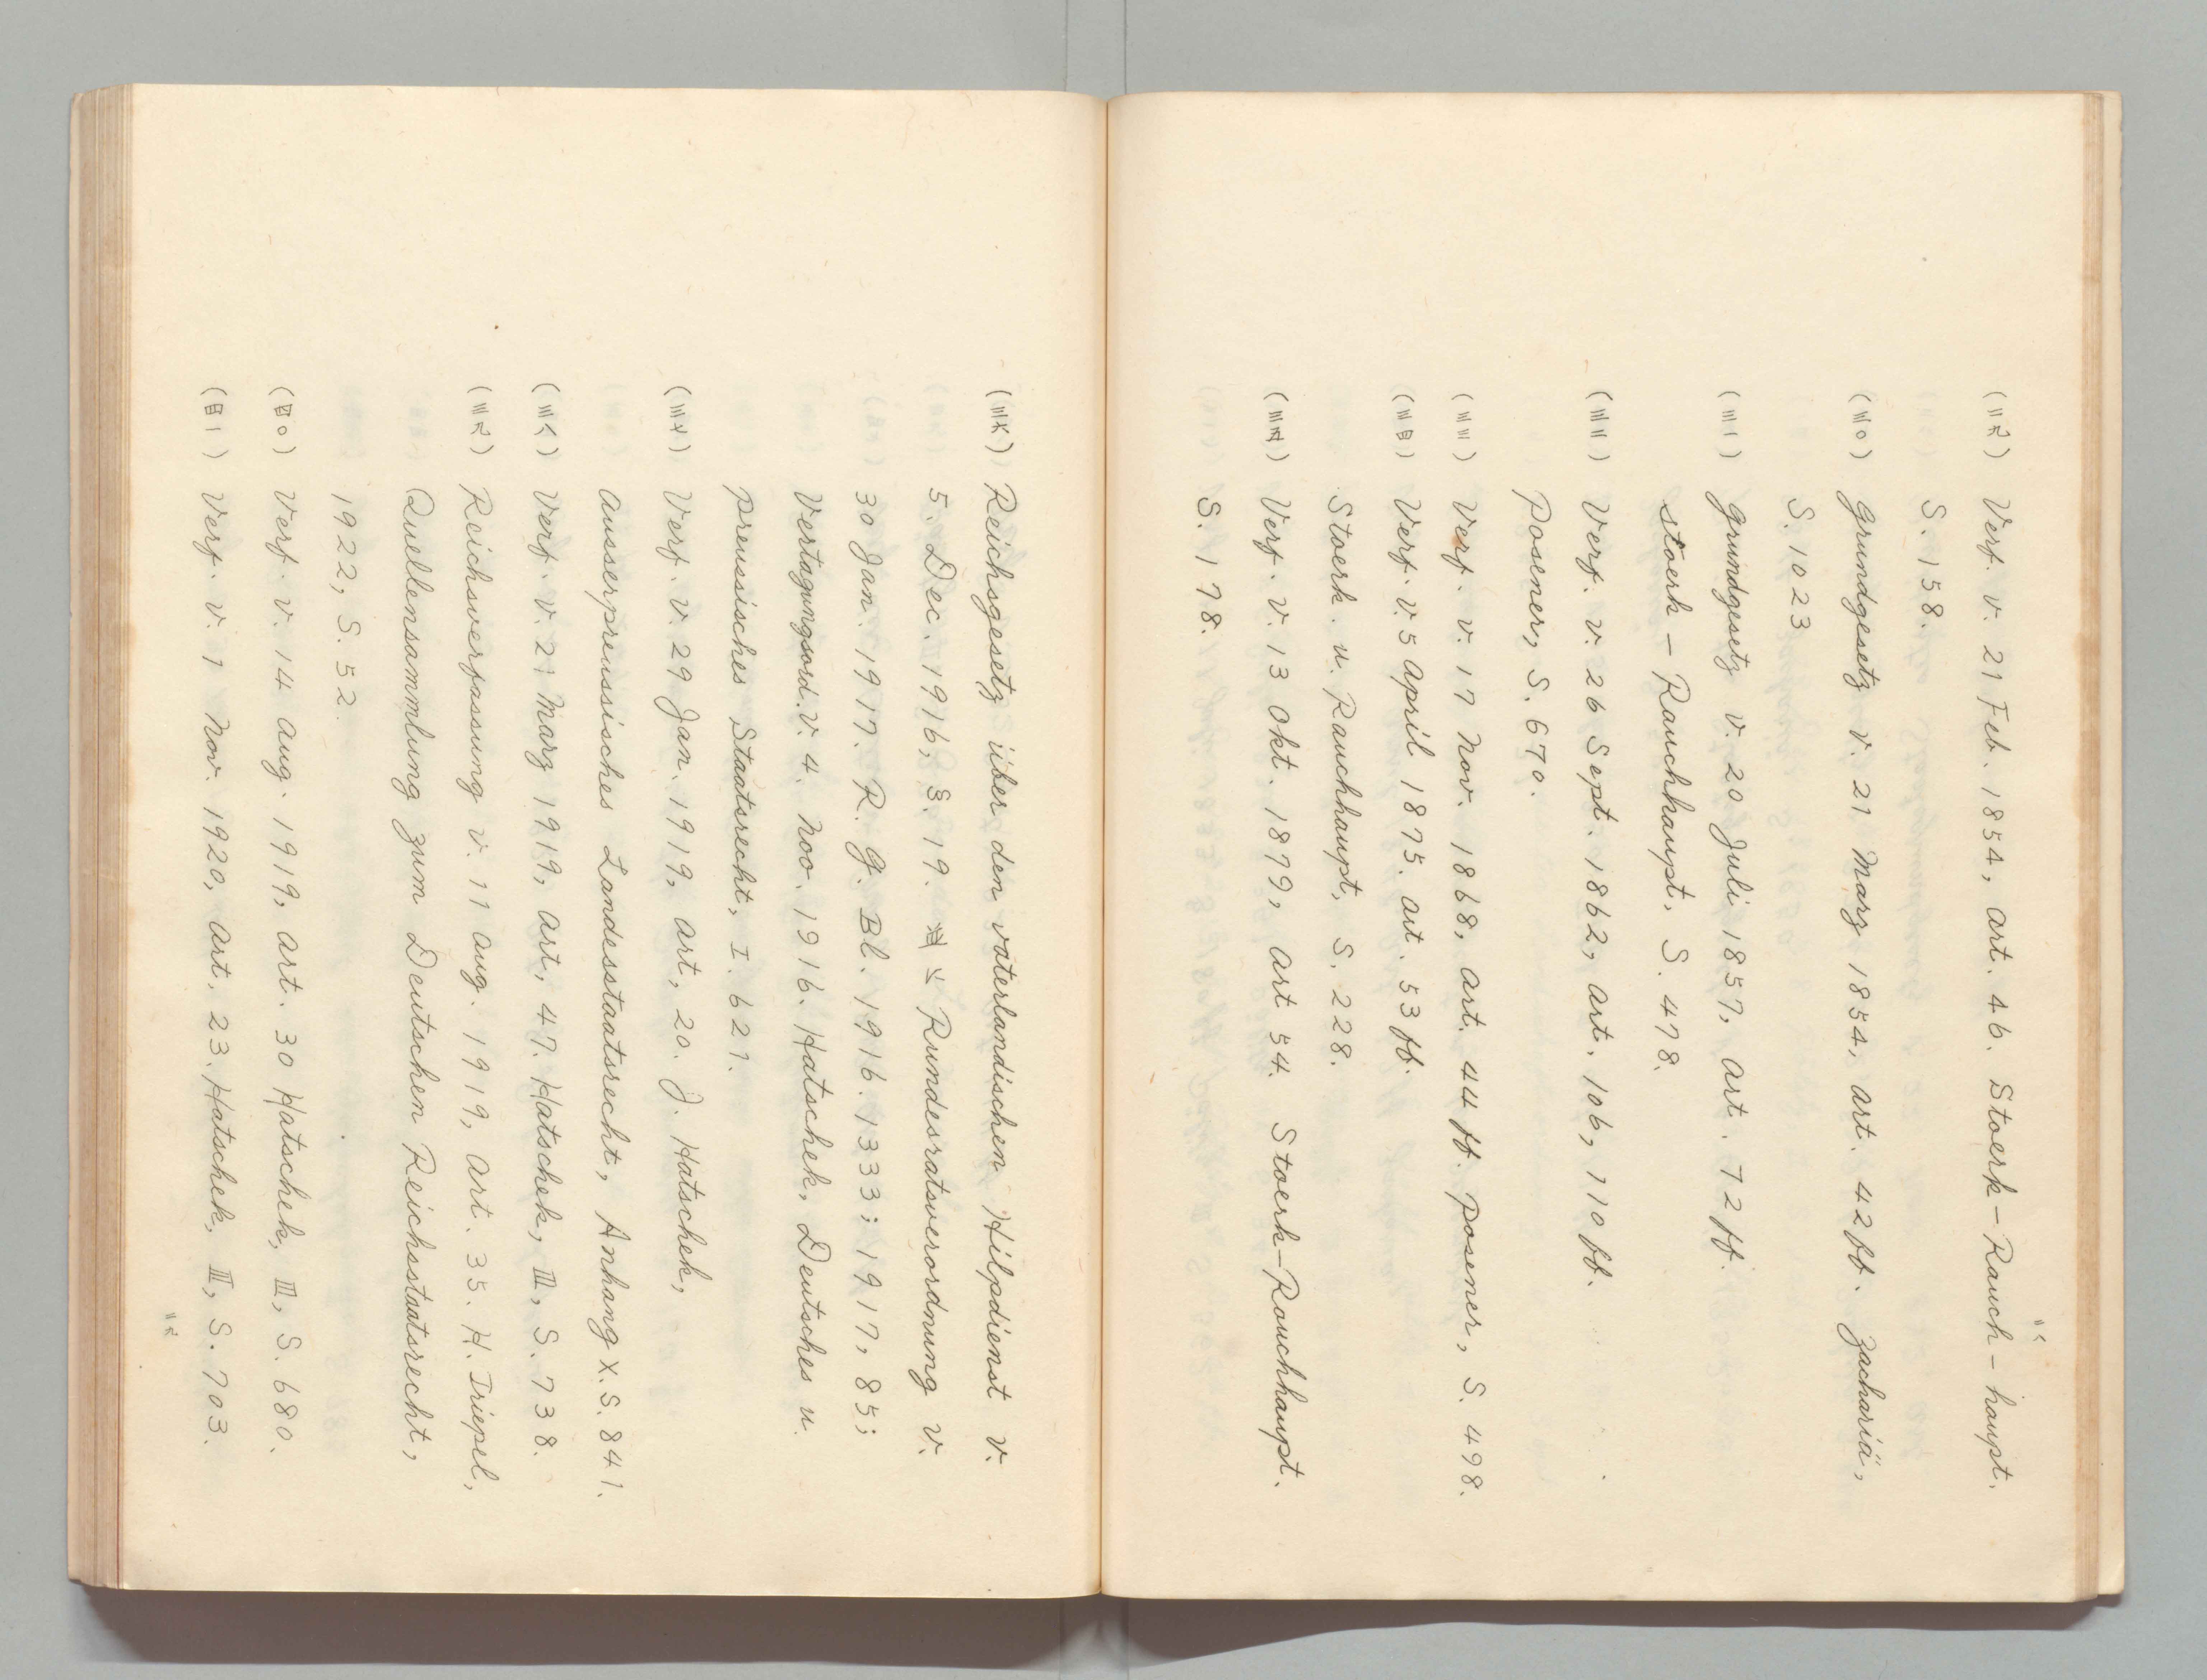 二八
(二九) Verf. v. 21 Feb. 1854, art. 46. Stoerk-Rauch-haupt.
S. 158.
(三〇) Grundgesetz v. 21 Marz 1854, art. 42 ff. Zachariä,
S. 1023
(三一) Grundgesetz v. 20 Juli 1857, art. 72 ff.
Stoerk-Rauchhaupt, S. 478.
(三二) Verf. v. 26 Sept. 1862, art. 106, 110 ff.
Posener, S. 670.
(三三) Verf. v. 17 Nov. 1868, art. 44 ff. Posener, S. 498.
(三四) Verf. v. 5 April 1875. art. 53 ff.
Stoerk. u. Rauchhaupt, S. 228.
(三五) Verf. v. 13 Okt. 1879, art 54. Stoerk-Rauchhaupt.
S. 178.
(三六) Reichsgesetz über den vaterlandischen Hilfsdienst v.
5. Dec. 1916, §. 19. Bundesratsverordnung v.
30 Jan. 1917. R. G. Bl. 1916. 1333; 1917, 85;
Vertagungsord. v. 4. Nov. 1916. Hatschek, Deutsches u.
preussisches Staatsrecht, I. 621.
(三七) Verf. v. 29 Jan. 1919, art, 20. J. Hatschek,
Ausserpreussisches Landesstaatsrecht, Anhang X. S. 841.
(三八) Verf. v. 21 Marz 1919, art, 47. Hatschek, III, S. 738.
(三九) Reichsverfassung v. 11 Aug. 1919, art. 35. H. Triepel,
Quellensammlung zum Deutschen Reichsstaatsrecht,
1922, S. 52.
(四〇) Verf. v. 14 Aug. 1919, art. 30 Hatschek, III, S. 680.
(四一) Verf. v. 1 Nov. 1920, art, 23. Hatschek, III, S. 703.
二九